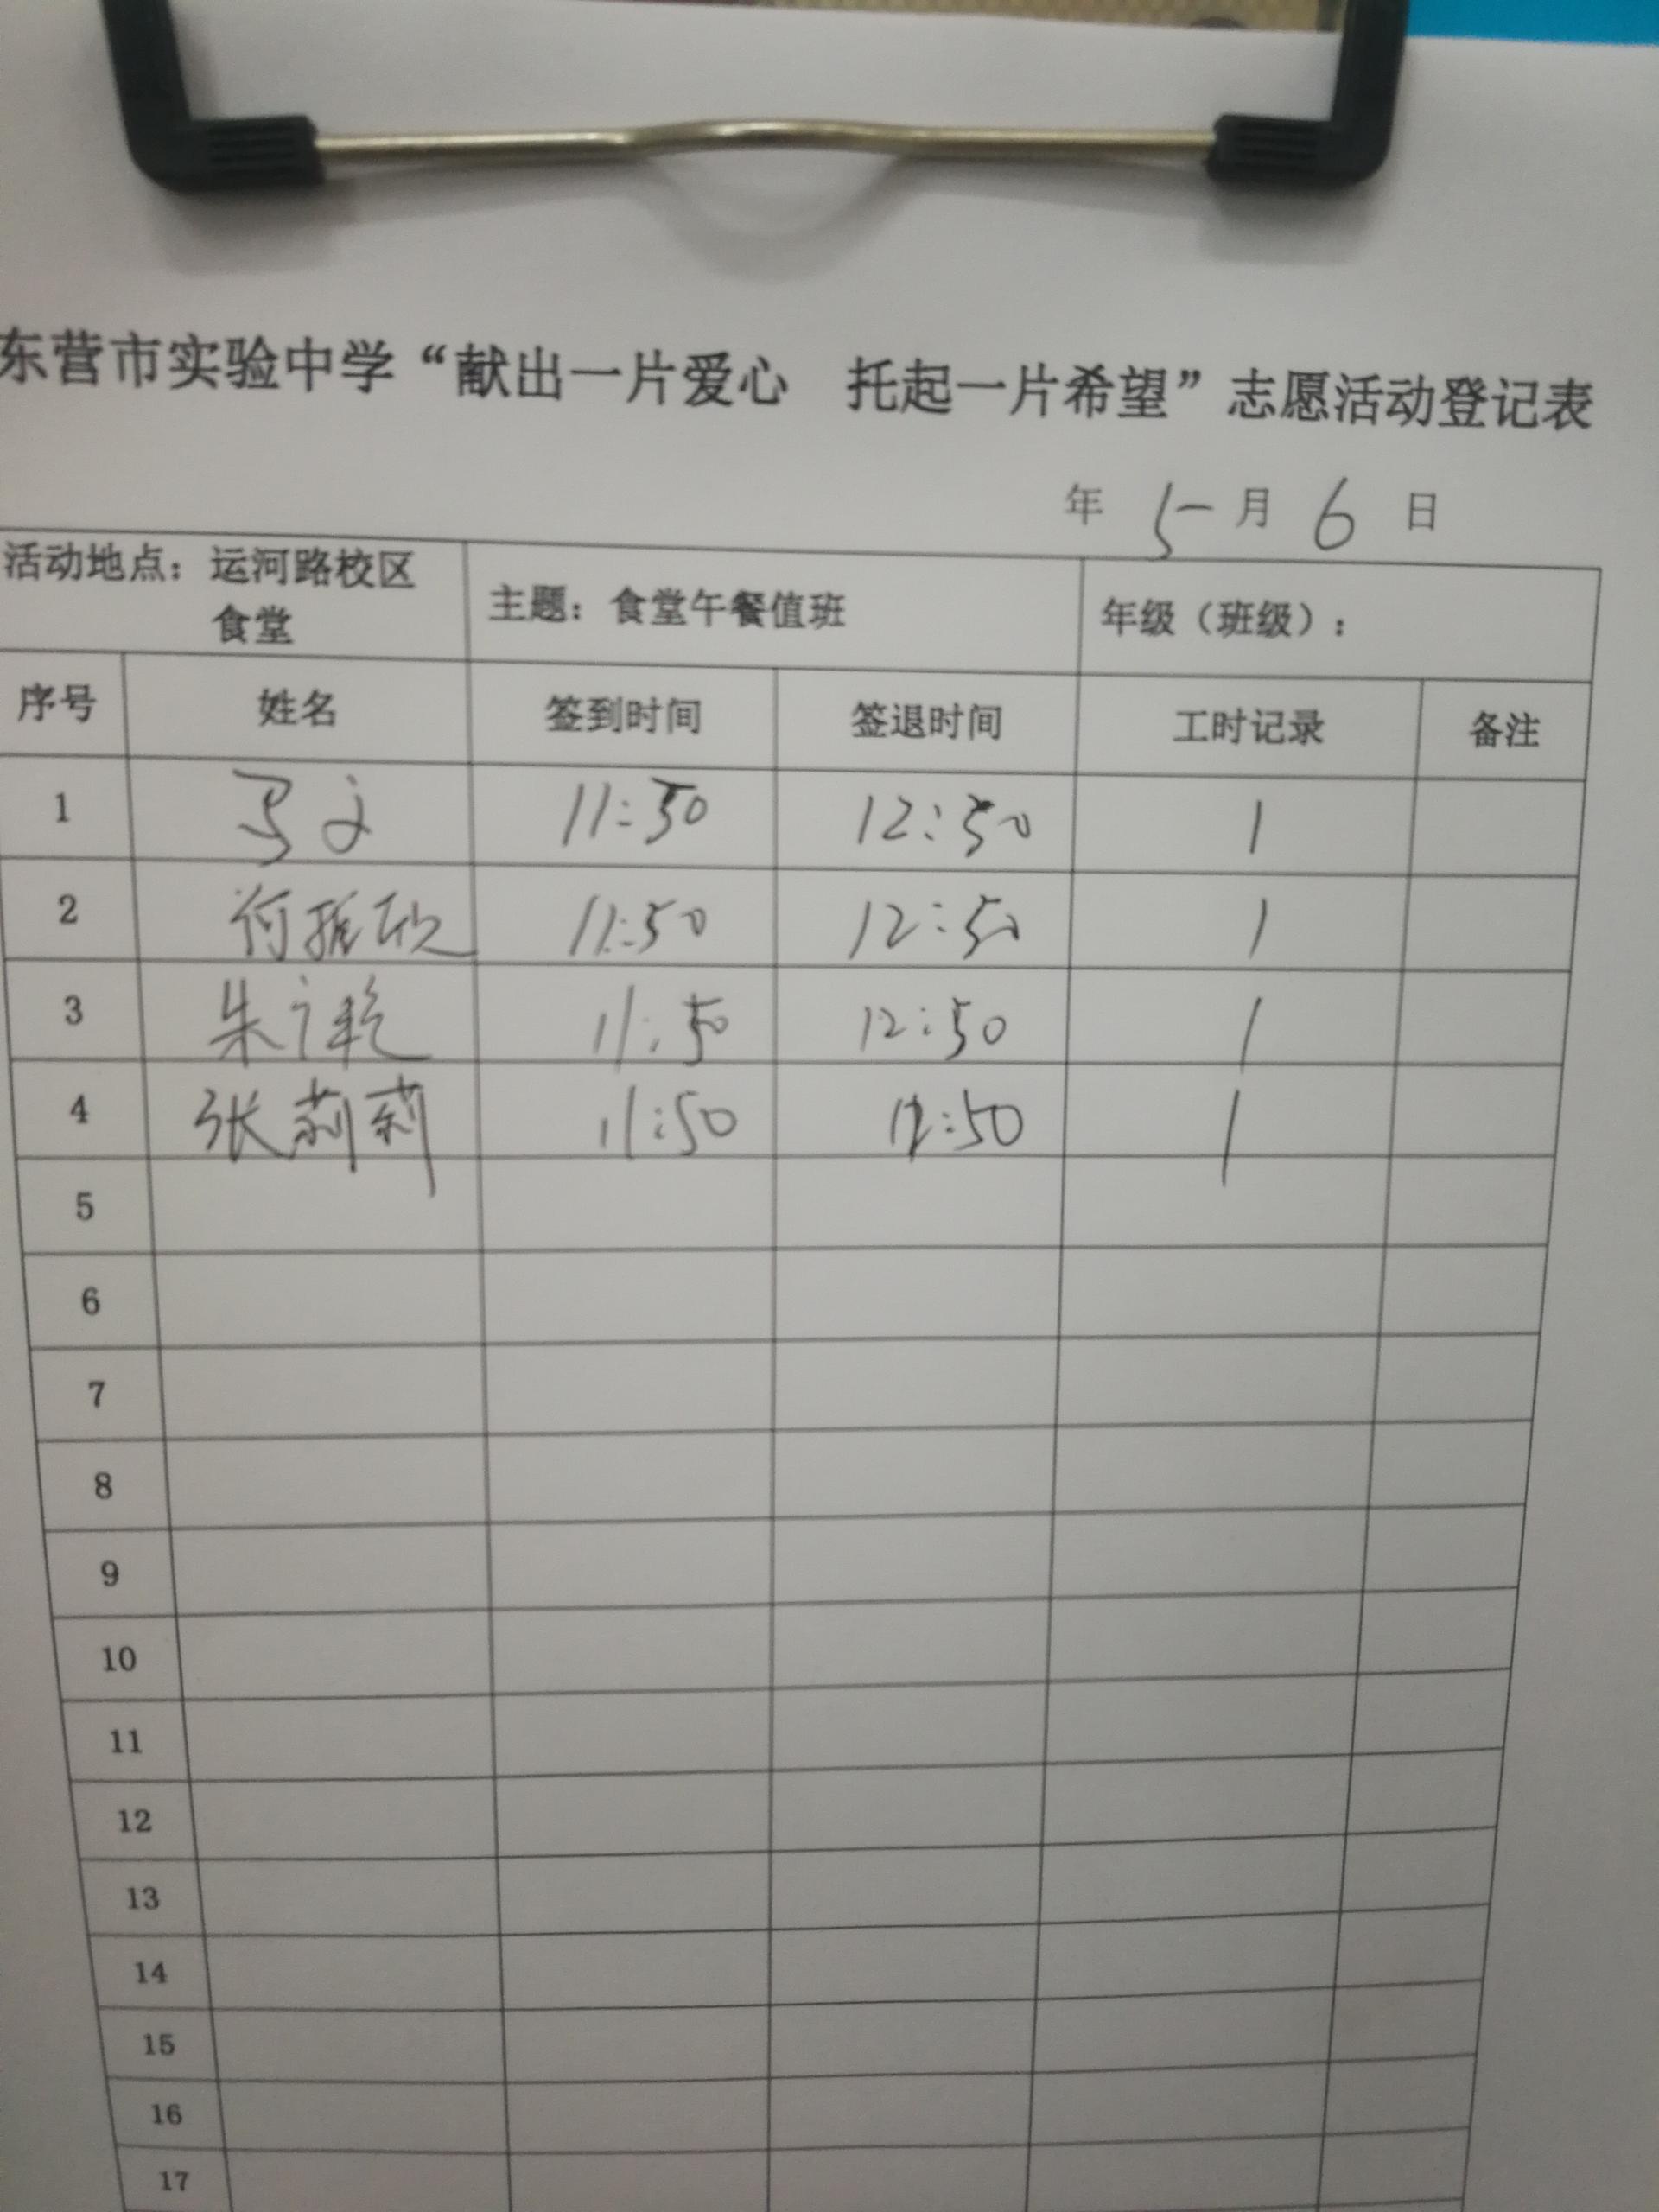 东营市实验中学“献出一片爱心 托起一片希望”志愿活动登记表
年 5 月 6 日
活动地点：运河路校区 食堂 主题：食堂午餐值班 年级（班级）：
序号 姓名 签到时间 签退时间 工时记录 备注
1 11:50 12:50 1
2 11:50 12:50 1
3 朱 11:50 12:50 1
4 张莉莉 11:50 12:50 1
5
6
7
8
9
10
11
12
13
14
15
16
17